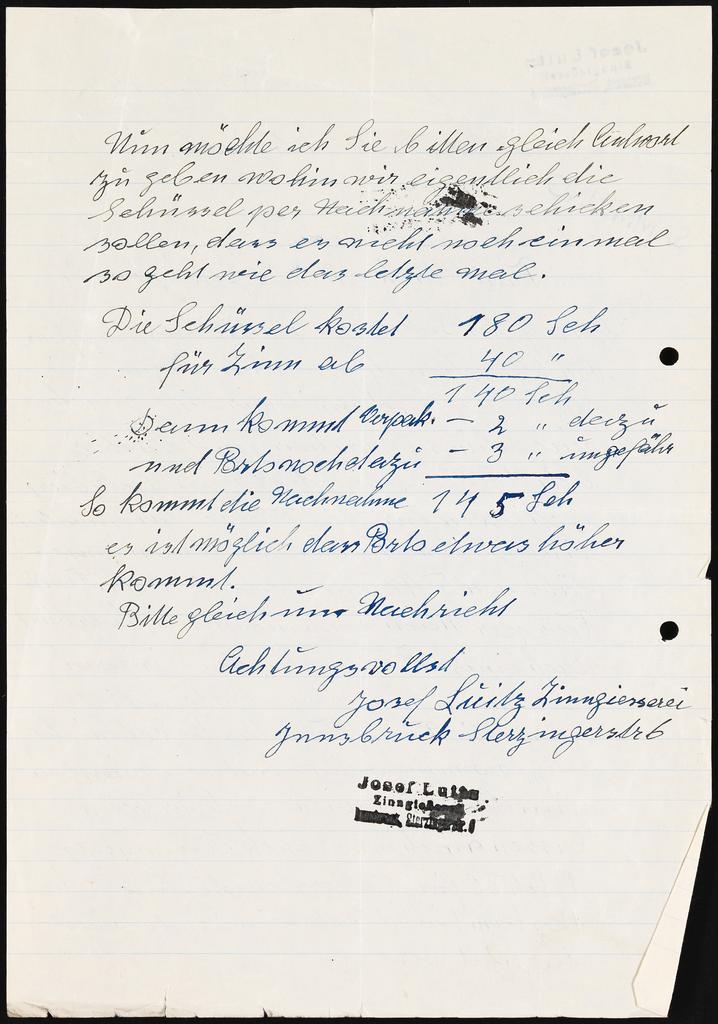 Nun möchte ich Sie bitten gleich Antwort
zu geben wohin wir eigentlich die
Schüssel per Nachnahme schicken
sollen, dass es nicht noch einmal
so geht wie das letzte mal.
Die Schüssel kostet 180 Sch
für Zinn ab 40 "
140 Sch
Dann kommt Verpak. - 2 " dazu
und Porto noch dazu - 3 " ungefähr
So kommt die Nachnahme 145 Sch
es ist möglich dass Porto etwas höher
kommt.
Bitte gleich um Nachricht
Achtungsvollst
Josef Luitz Zinngiesserei
Innsbruck Sterzingerstr 6
Josef Luitz
Zinngießerei
Innsbruck, Sterzingerstr. 6